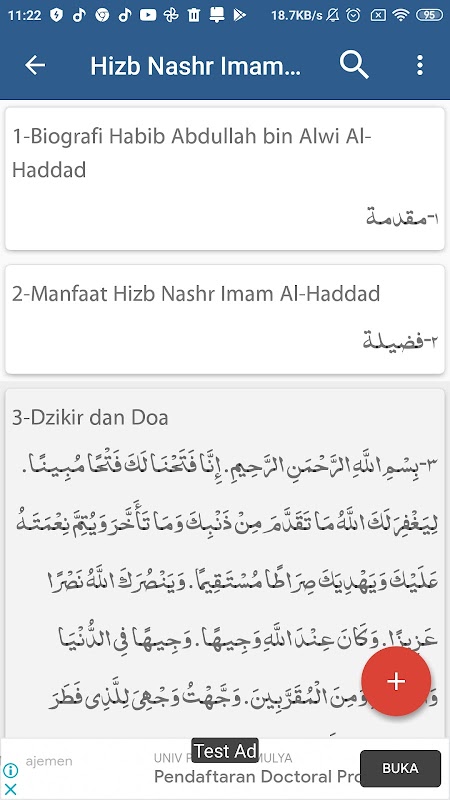 11:22
18.7KB/s
95
Hizb Nashr Imam...
1-Biografi Habib Abdullah bin Alwi Al-
Haddad
١-مقدمة
2-Manfaat Hizb Nashr Imam Al-Haddad
٢-فضيلة
3-Dzikir dan Doa
٣-بِسْمِ اللَّهِ الرَّحْمَنِ الرَّحِيمِ. إِنَّا فَتَحْنَا لَكَ فَتْحًا مُبِينًا.
لِيَغْفِرَ لَكَ اللَّهُ مَا تَقَدَّمَ مِنْ ذَنْبِكَ وَمَا تَأَخَّرَ وَيُتِمَّ نِعْمَتَهُ
عَلَيْكَ وَيَهْدِيَكَ صِرَاطًا مُسْتَقِيمًا. وَيَنْصُرَكَ اللَّهُ نَصْرًا
عَزِيزًا. وَكَانَ عِنْدَ اللَّهِ وَجِيهًا. وَجِيهًا فِي الدُّنْيَا
وَمِنَ الْمُقَرَّبِينَ. وَجَّهْتُ وَجْهِيَ لِلَّذِي فَطَرَ
ajemen
UNIV MULYA
Test Ad
Pendaftaran Doctoral Pro
BUKA